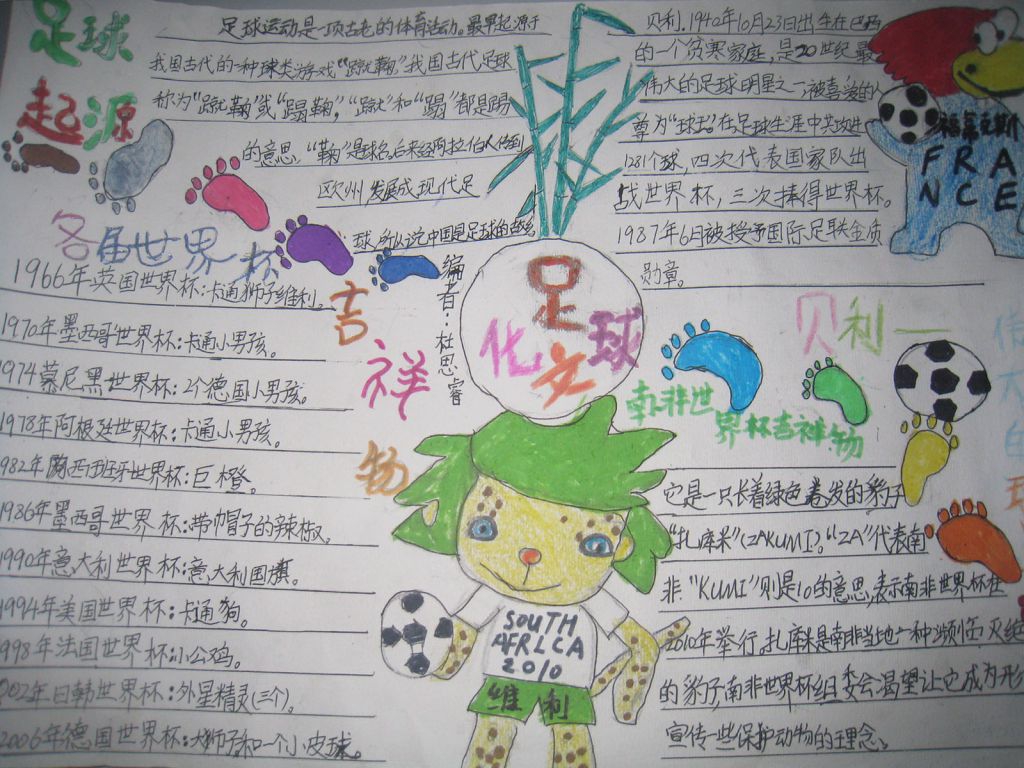 足球
起源
足球运动是一项古老的体育活动。最早起源于
我国古代的一种球类游戏“蹴鞠”我国古代足球
称为“蹴鞠”或“蹋鞠”，“蹴”和“蹋”都是踢
的意思，“鞠”是球名。后来经阿拉伯人传到
欧州，发展成现代足
球，所以说中国是足球的
各届世界杯
吉祥物
1966年英国世界杯：卡通狮子维利。
1970年墨西哥世界杯：卡通小男孩。
1974慕尼黑世界杯：2个德国小男孩。
1978年阿根廷世界杯：卡通小男孩。
982年西班牙世界杯：巨橙。
1986年墨西哥世界杯：带帽子的辣椒。
1990年意大利世界杯：意大利国旗。
1994年美国世界杯：卡通狗。
998年法国世界杯：小公鸡。
002年日韩世界杯：外星精灵（三个）。
2006年德国世界杯：大狮子和一个小皮球。
编者：杜思睿
足球
文化
SOUTH
AFRLCA
2010
维利
贝利．1940年10月23日出生在巴西
的一个贫寒家庭，是20世纪最
伟大的足球明星之一被喜爱的人
尊为“球王”在足球生涯中共攻进
1281个球，四次代表国家队出
战世界杯，三次捧得世界杯。
1987年6月被授予国际足联金质
勋章。
福蒂克斯
FRA
NCE
贝利—
伟大的球
南非世
界杯吉祥物
它是一只长着绿色卷发的豹子
“扎库米”（ZAKUMI）。“ZA”代表南
非“KUMI”则是10的意思，表示南非世界杯在
2010年举行，扎库米是南非当地一种濒临灭绝
的豹子，南非世界杯组委会渴望让它成为形
宣传一些保护动物的理念。